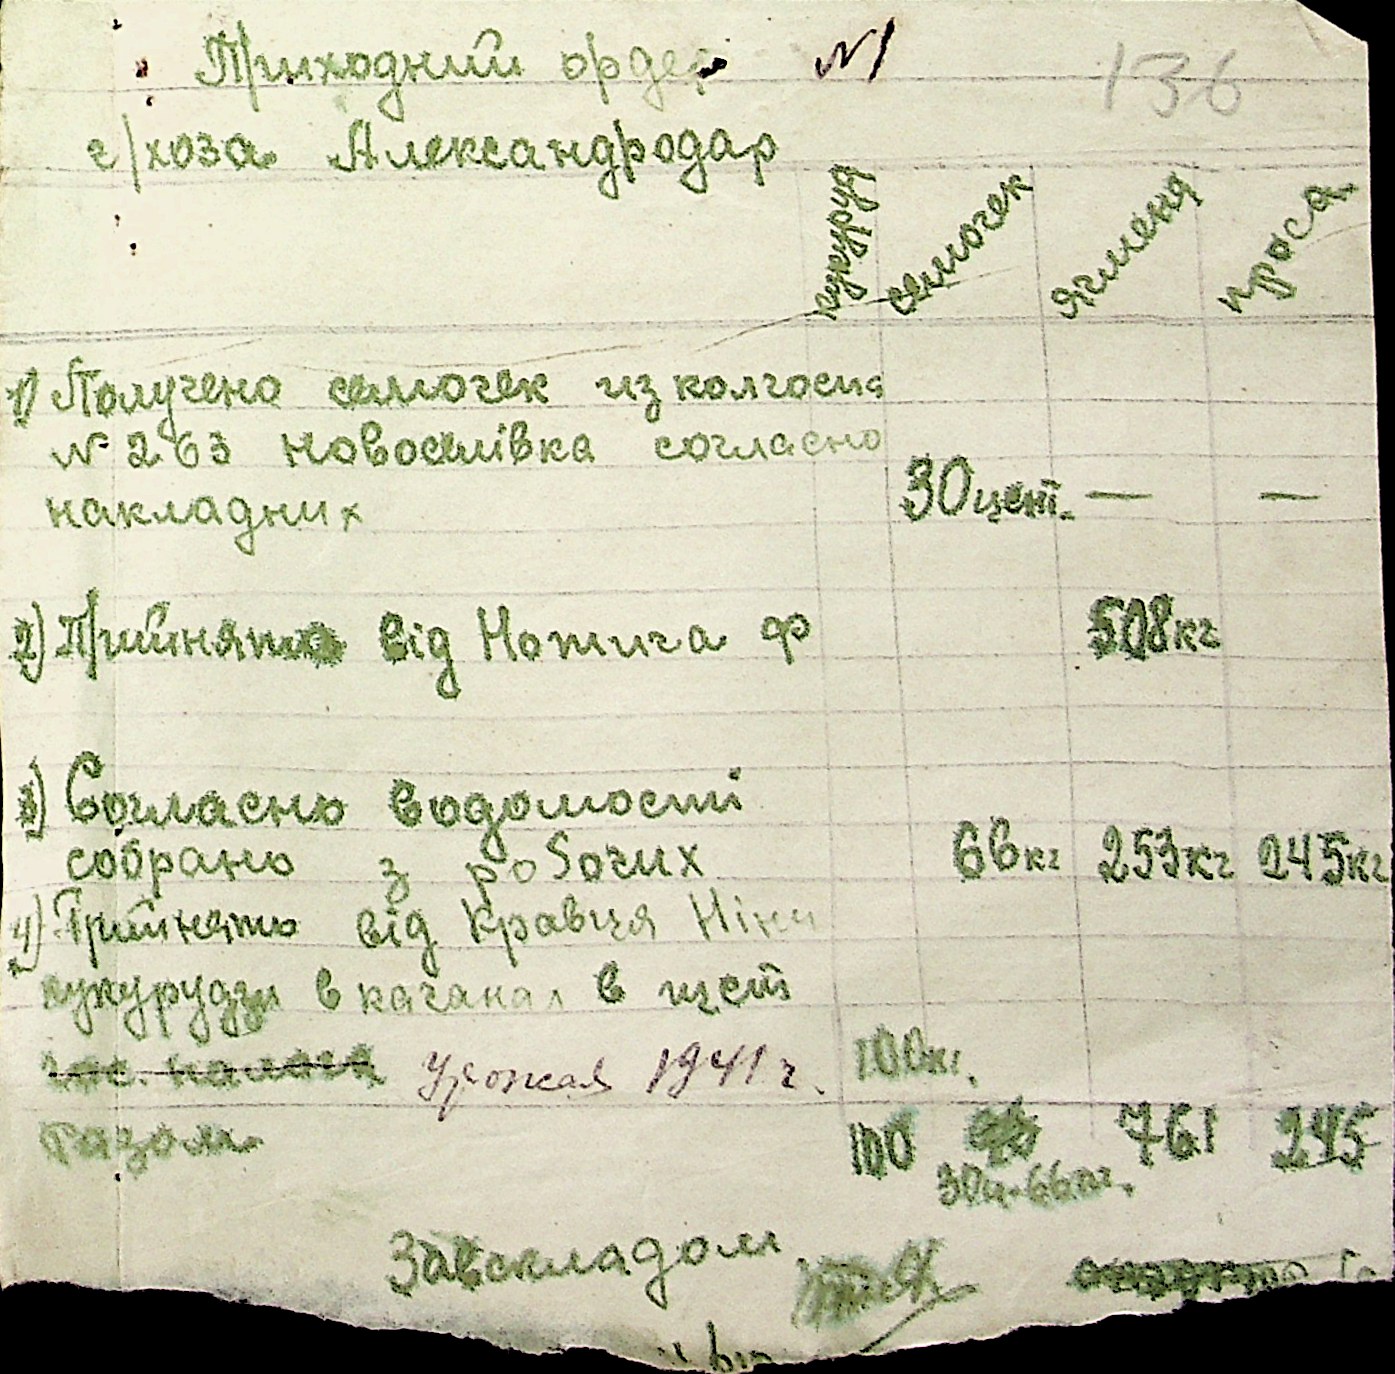 Приходний ордер №1
136
с/хоза Александродар
кукурузи семочек ячменя проса
1) Получено семочек из колгоспа
№ 263 Новоселівка согласно
накладних 30 цент. — —
2) Прийнято від Нотича Ф 508 кг
3) Согласно водомости
собрано з робочих 66 кг 253 кг 245 кг
4) Прийнято від Кравця Ніни
кукурудзи в качанах в щет
Урожая 1941 г. 100 кг.
Разом 100 761 245
30 ц. 66 кг.
Завскладом